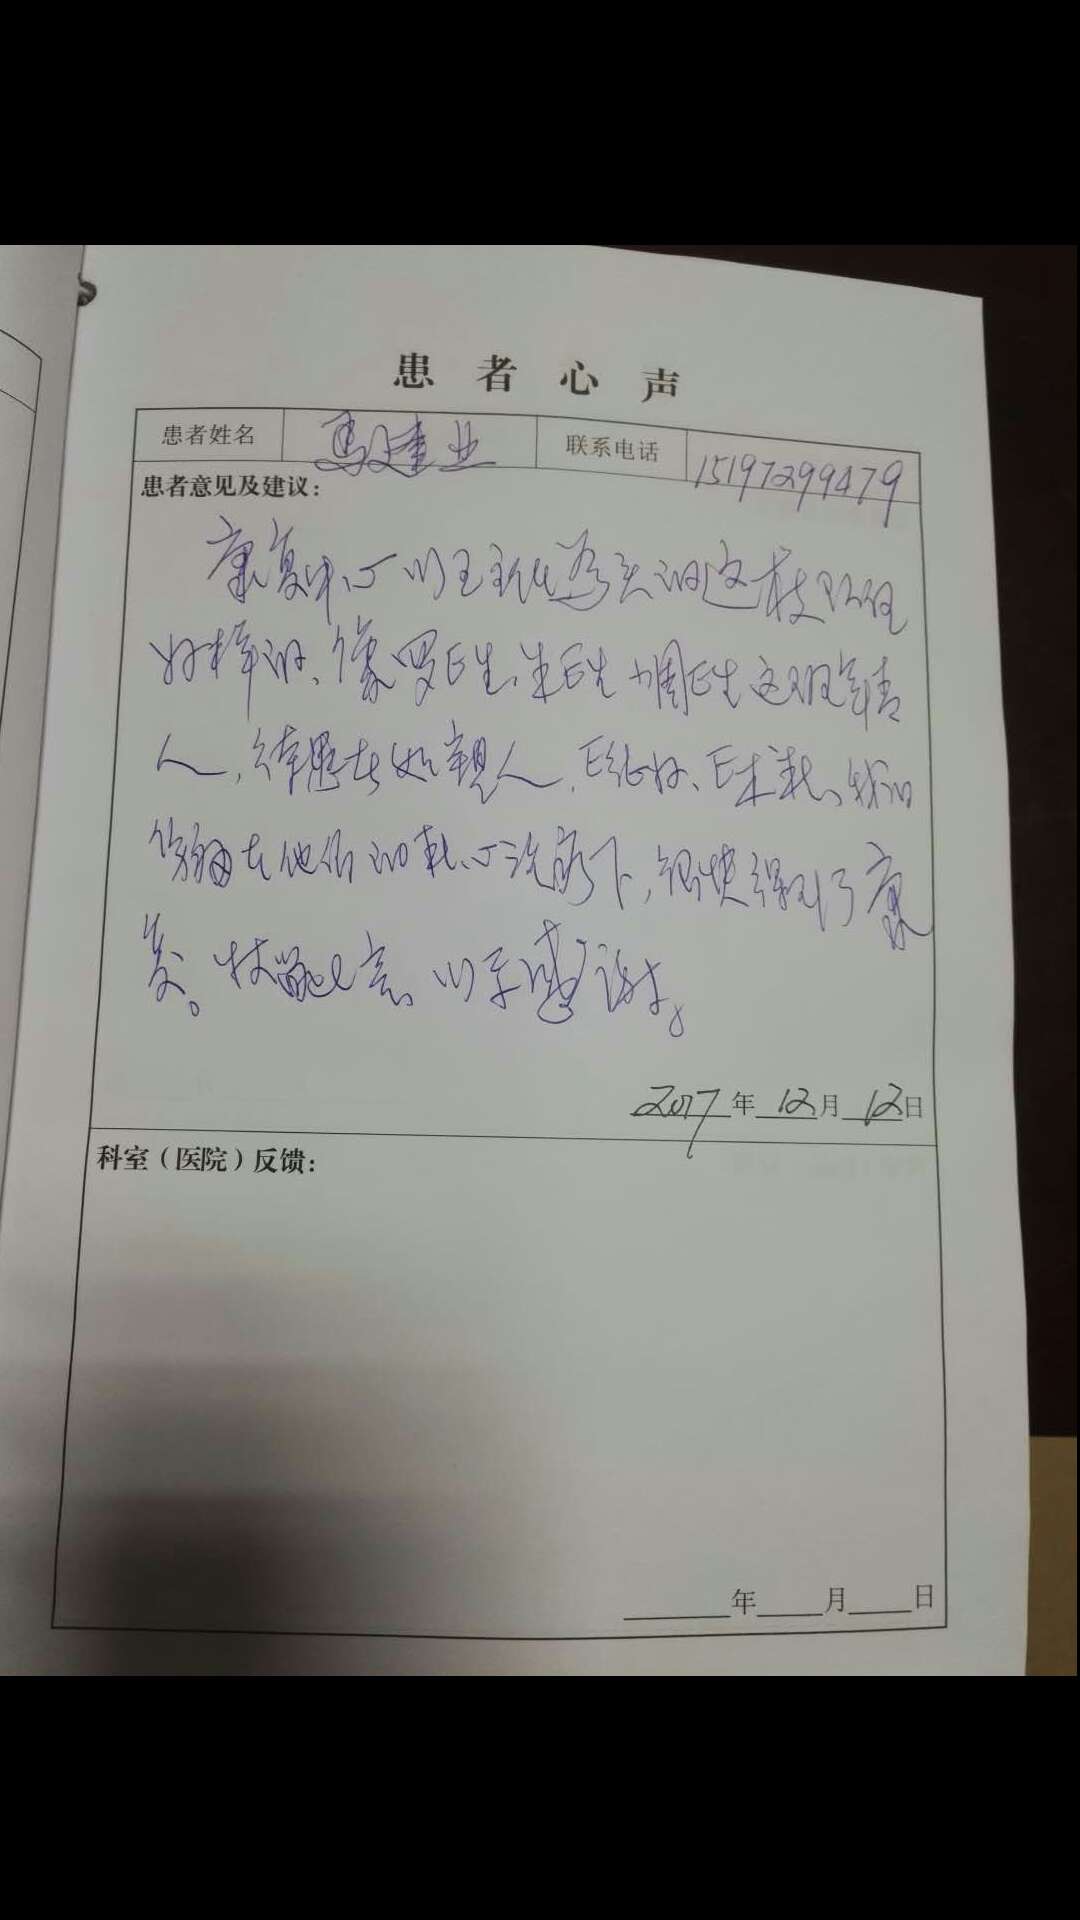 患者心声
患者姓名 马建业 联系电话 15197299479
患者意见及建议：
康复中心以王主任为头的这枝队伍
好样的、像罗医生、朱医生 周医生这班年青
人，待患者如亲人，医德好、医术高、我的
病在他们的精心治疗下，很快得到了康
复。特此言、以示感谢。
2017年12月12日
科室（医院）反馈：
年 月 日